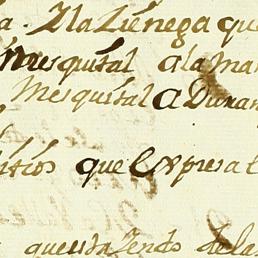 a. Y la Ziénega que
Mesquital a la ma
Mesquital a Duran
itios que Expresa
que